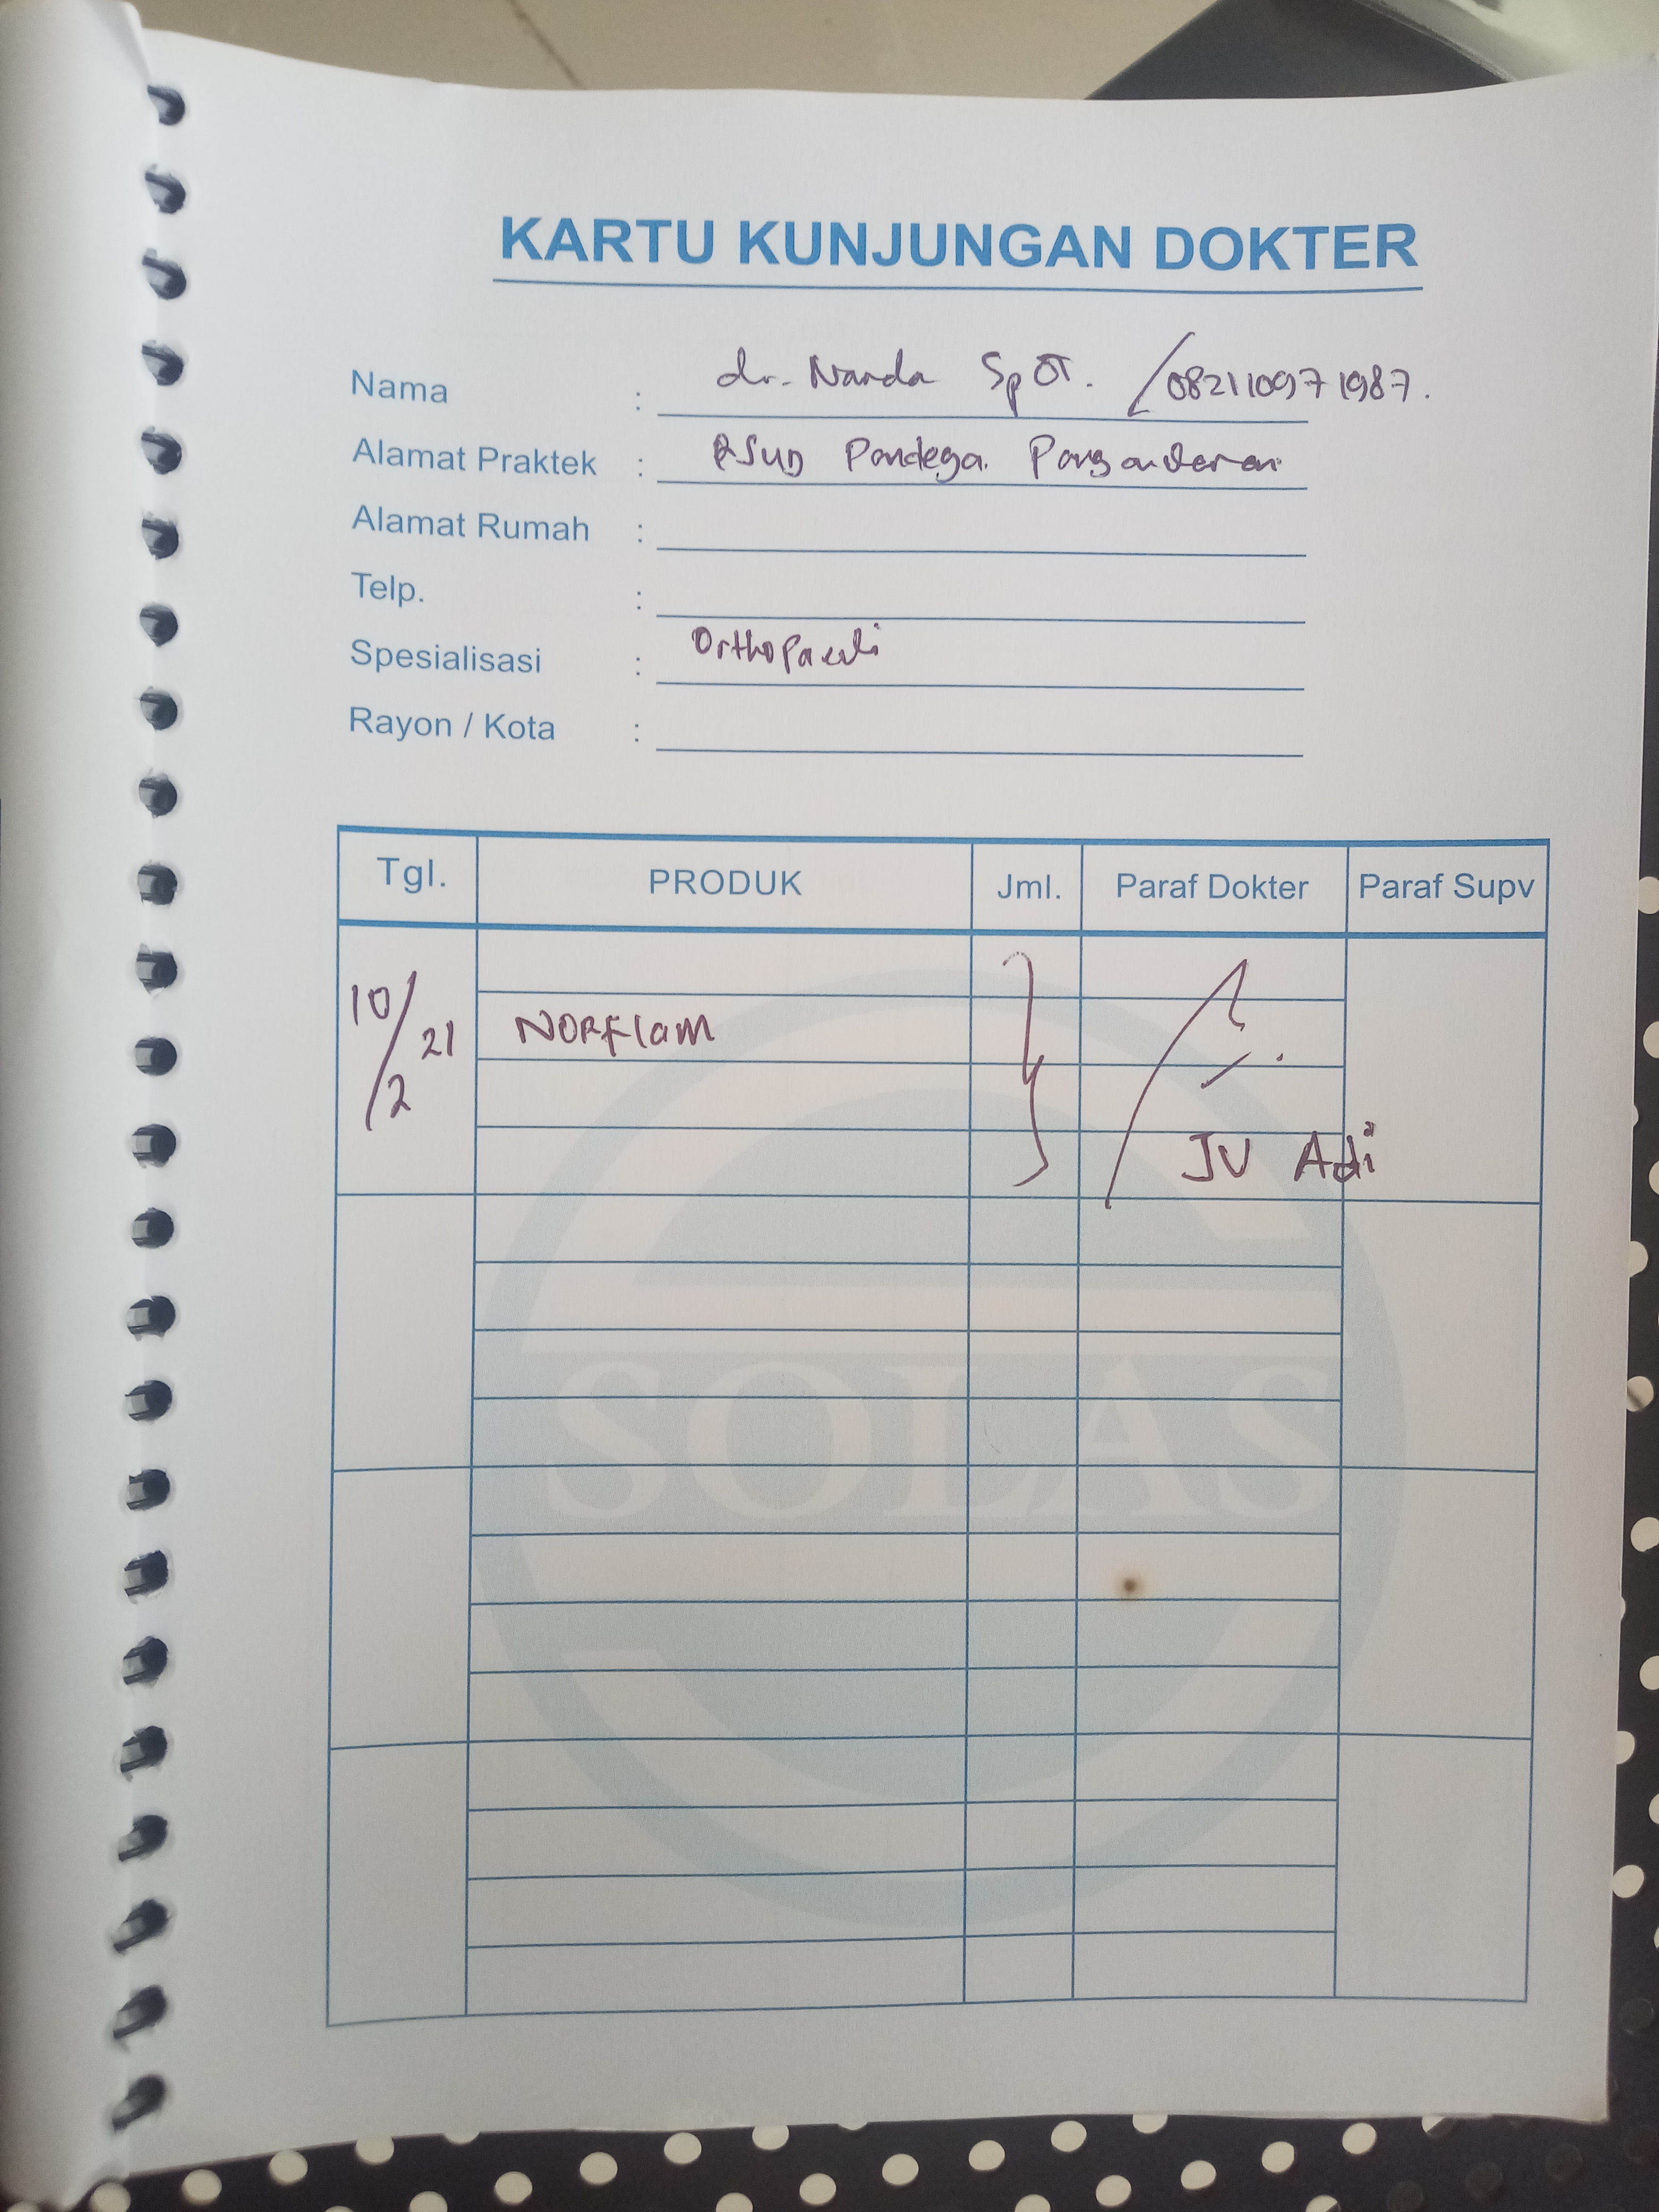 KARTU KUNJUNGAN DOKTER
Nama : dr. Nanda SpOT. / 082110971987.
Alamat Praktek : RSUD Pandega Pangandaran
Alamat Rumah :
Telp. :
Spesialisasi : Orthopaedi
Rayon / Kota :
Tgl. PRODUK Jml. Paraf Dokter Paraf Supv
10/2 21 NORFlam
JV Adi
SOLAS